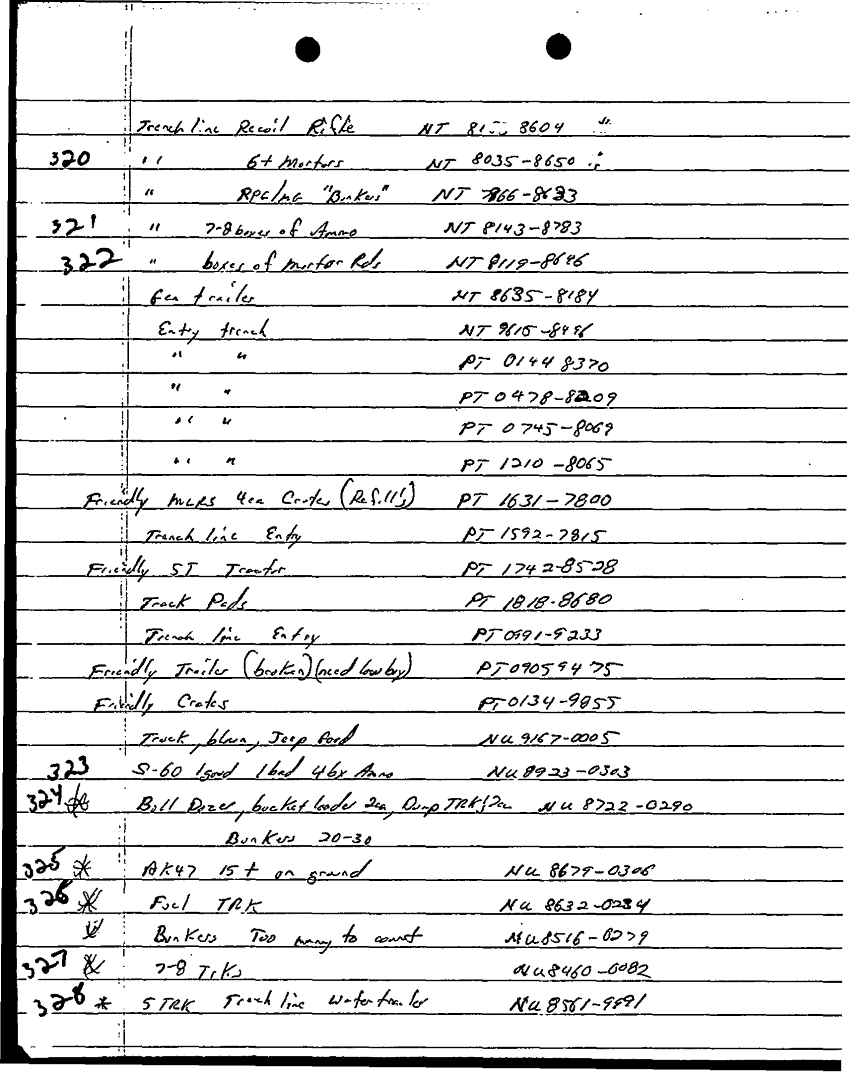 Trench line Recoil Rifle NT 8604
320 " 6+ Mortors NT 8035-8650
" RPG/MG "Bunkers" NT
321 " 7-8 boxes of Ammo NT 8143-8783
322 " boxes of mortor Rds NT 8119-8646
Gen trailer NT 8635-8184
Entry trench NT 9615-8446
" " PT 0144 8370
" " PT 0478-8209
" " PT 0745-8069
" " PT 1210-8065
Friendly MLRS 4ea Crates (Refill's) PT 1631-7800
Trench line Entry PT 1592-7815
Friendly 5T Tractor PT 1742-8528
Track Pads PT 1818-8680
Trench line Entry PT 0991-9233
Friendly Trailer (broken) (need lowboy) PT 0905 9475
Friendly Crates PT 0134-9855
Truck, blown, Jeep NU 9167-0005
323 S-60 1good 1bad 4bx Ammo NU 8923-0303
324 * Bull Dozer, bucket loader 2ea, Dump TRK 2ea NU 8722-0290
Bunkers 20-30
325 * AK47 15+ on ground NU 8679-0306
326 * Fuel TRK NU 8632-0234
* Bunkers Too many to count NU 8516-0279
327 * 7-8 TrKs NU 8460-0082
328 * 5 TRK Trench line Water trailer NU 8561-9991